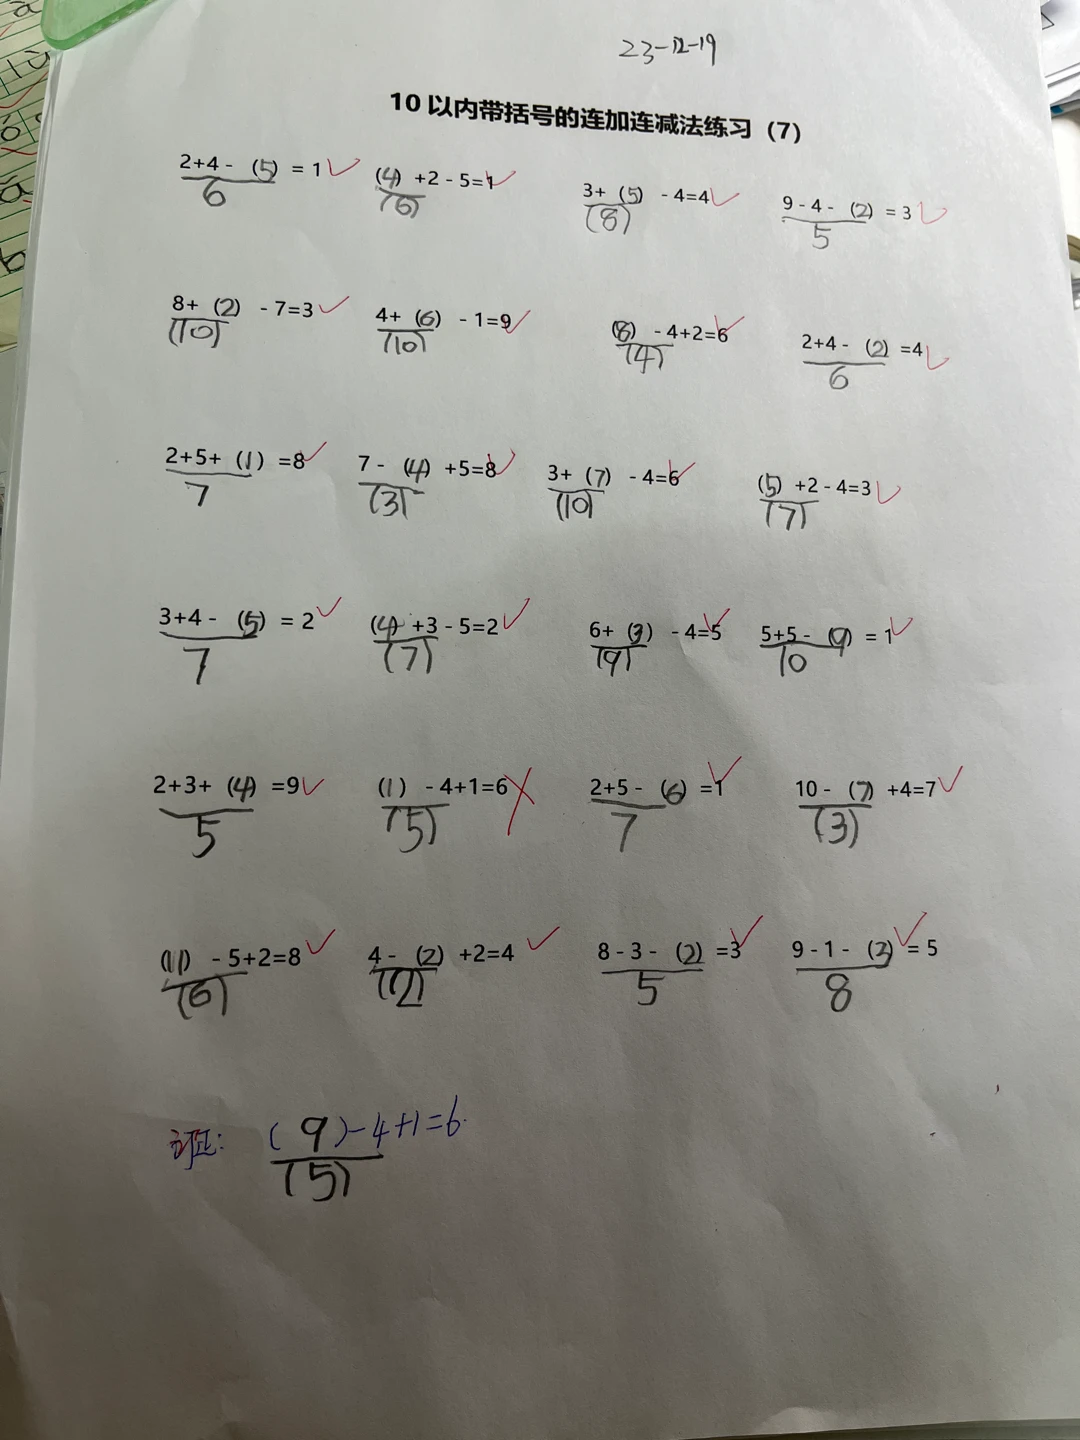 23-12-19
10以内带括号的连加连减法练习（7）
2+4-（5）= 1 （4）+2-5=1 3+（5）-4=4 9-4-（2）= 3
6 （6） （8） 5
8+（2）-7=3 4+（6）-1=9 （8）-4+2=6 2+4-（2）=4
（10） （10） （4） 6
2+5+（1）=8 7-（4）+5=8 3+（7）-4=6 （5）+2-4=3
7 （3） （10） （7）
3+4-（5）= 2 （4）+3-5=2 6+（3）-4=5 5+5-（9）= 1
7 （7） （9） 10
2+3+（4）=9 （1）-4+1=6 2+5-（6）=1 10-（7）+4=7
5 （5） 7 （3）
（11）-5+2=8 4-（2）+2=4 8-3-（2）=3 9-1-（3）= 5
（6） （2） 5 8
订正: （9）-4+1=6.
（5）